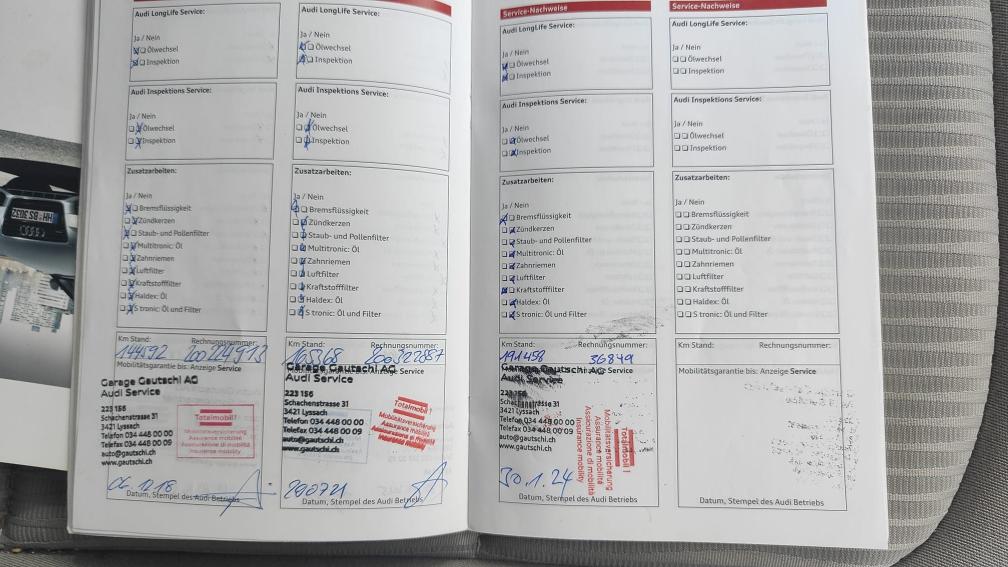 Audi LongLife Service:
Ja / Nein
Ölwechsel
Inspektion
Audi Inspektions Service:
Ja / Nein
Ölwechsel
Inspektion
Zusatzarbeiten:
Ja / Nein
Bremsflüssigkeit
Zündkerzen
Staub- und Pollenfilter
Multitronic: Öl
Zahnriemen
Luftfilter
Kraftstofffilter
Haldex: Öl
S tronic: Öl und Filter
Km Stand: Rechnungsnummer:
144592 200224973
Mobilitätsgarantie bis: Anzeige Service
Garage Gautschi AG
Audi Service
223 156
Schachenstrasse 31
3421 Lyssach
Telefon 034 448 00 00
Telefax 034 448 00 09
auto@gautschi.ch
www.gautschi.ch
Totalmobil!
Mobilitätsversicherung
Assurance mobilité
Assicurazione di mobilità
Insurance mobility
06.12.18
Datum, Stempel des Audi Betriebs
Audi LongLife Service:
Ja / Nein
Ölwechsel
Inspektion
Audi Inspektions Service:
Ja / Nein
Ölwechsel
Inspektion
Zusatzarbeiten:
Ja / Nein
Bremsflüssigkeit
Zündkerzen
Staub- und Pollenfilter
Multitronic: Öl
Zahnriemen
Luftfilter
Kraftstofffilter
Haldex: Öl
S tronic: Öl und Filter
Km Stand: Rechnungsnummer:
165368 200302887
Mobilitätsgarantie bis: Anzeige Service
Garage Gautschi AG
Audi Service
223 156
Schachenstrasse 31
3421 Lyssach
Telefon 034 448 00 00
Telefax 034 448 00 09
auto@gautschi.ch
www.gautschi.ch
Totalmobil!
Mobilitätsversicherung
Assurance mobilité
Assicurazione di mobilità
Insurance mobility
290721
Datum, Stempel des Audi Betriebs
Service-Nachweise
Audi LongLife Service:
Ja / Nein
Ölwechsel
Inspektion
Audi Inspektions Service:
Ja / Nein
Ölwechsel
Inspektion
Zusatzarbeiten:
Ja / Nein
Bremsflüssigkeit
Zündkerzen
Staub- und Pollenfilter
Multitronic: Öl
Zahnriemen
Luftfilter
Kraftstofffilter
Haldex: Öl
S tronic: Öl und Filter
Km Stand: Rechnungsnummer:
191458 36849
Mobilitätsgarantie bis: Anzeige Service
Garage Gautschi AG
Audi Service
223 156
Schachenstrasse 31
3421 Lyssach
Telefon 034 448 00 00
Telefax 034 448 00 09
auto@gautschi.ch
www.gautschi.ch
Totalmobil!
Mobilitätsversicherung
Assurance mobilité
Assicurazione di mobilità
Insurance mobility
30.1.24
Datum, Stempel des Audi Betriebs
Service-Nachweise
Audi LongLife Service:
Ja / Nein
Ölwechsel
Inspektion
Audi Inspektions Service:
Ja / Nein
Ölwechsel
Inspektion
Zusatzarbeiten:
Ja / Nein
Bremsflüssigkeit
Zündkerzen
Staub- und Pollenfilter
Multitronic: Öl
Zahnriemen
Luftfilter
Kraftstofffilter
Haldex: Öl
S tronic: Öl und Filter
Km Stand: Rechnungsnummer:
Mobilitätsgarantie bis: Anzeige Service
Datum, Stempel des Audi Betriebs